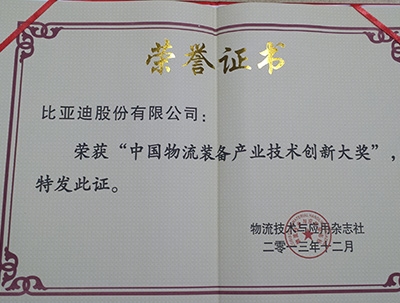 荣誉证书
比亚迪股份有限公司：
荣获“中国物流装备产业技术创新大奖”，
特发此证。
物流技术与应用杂志社
二零一三年十二月